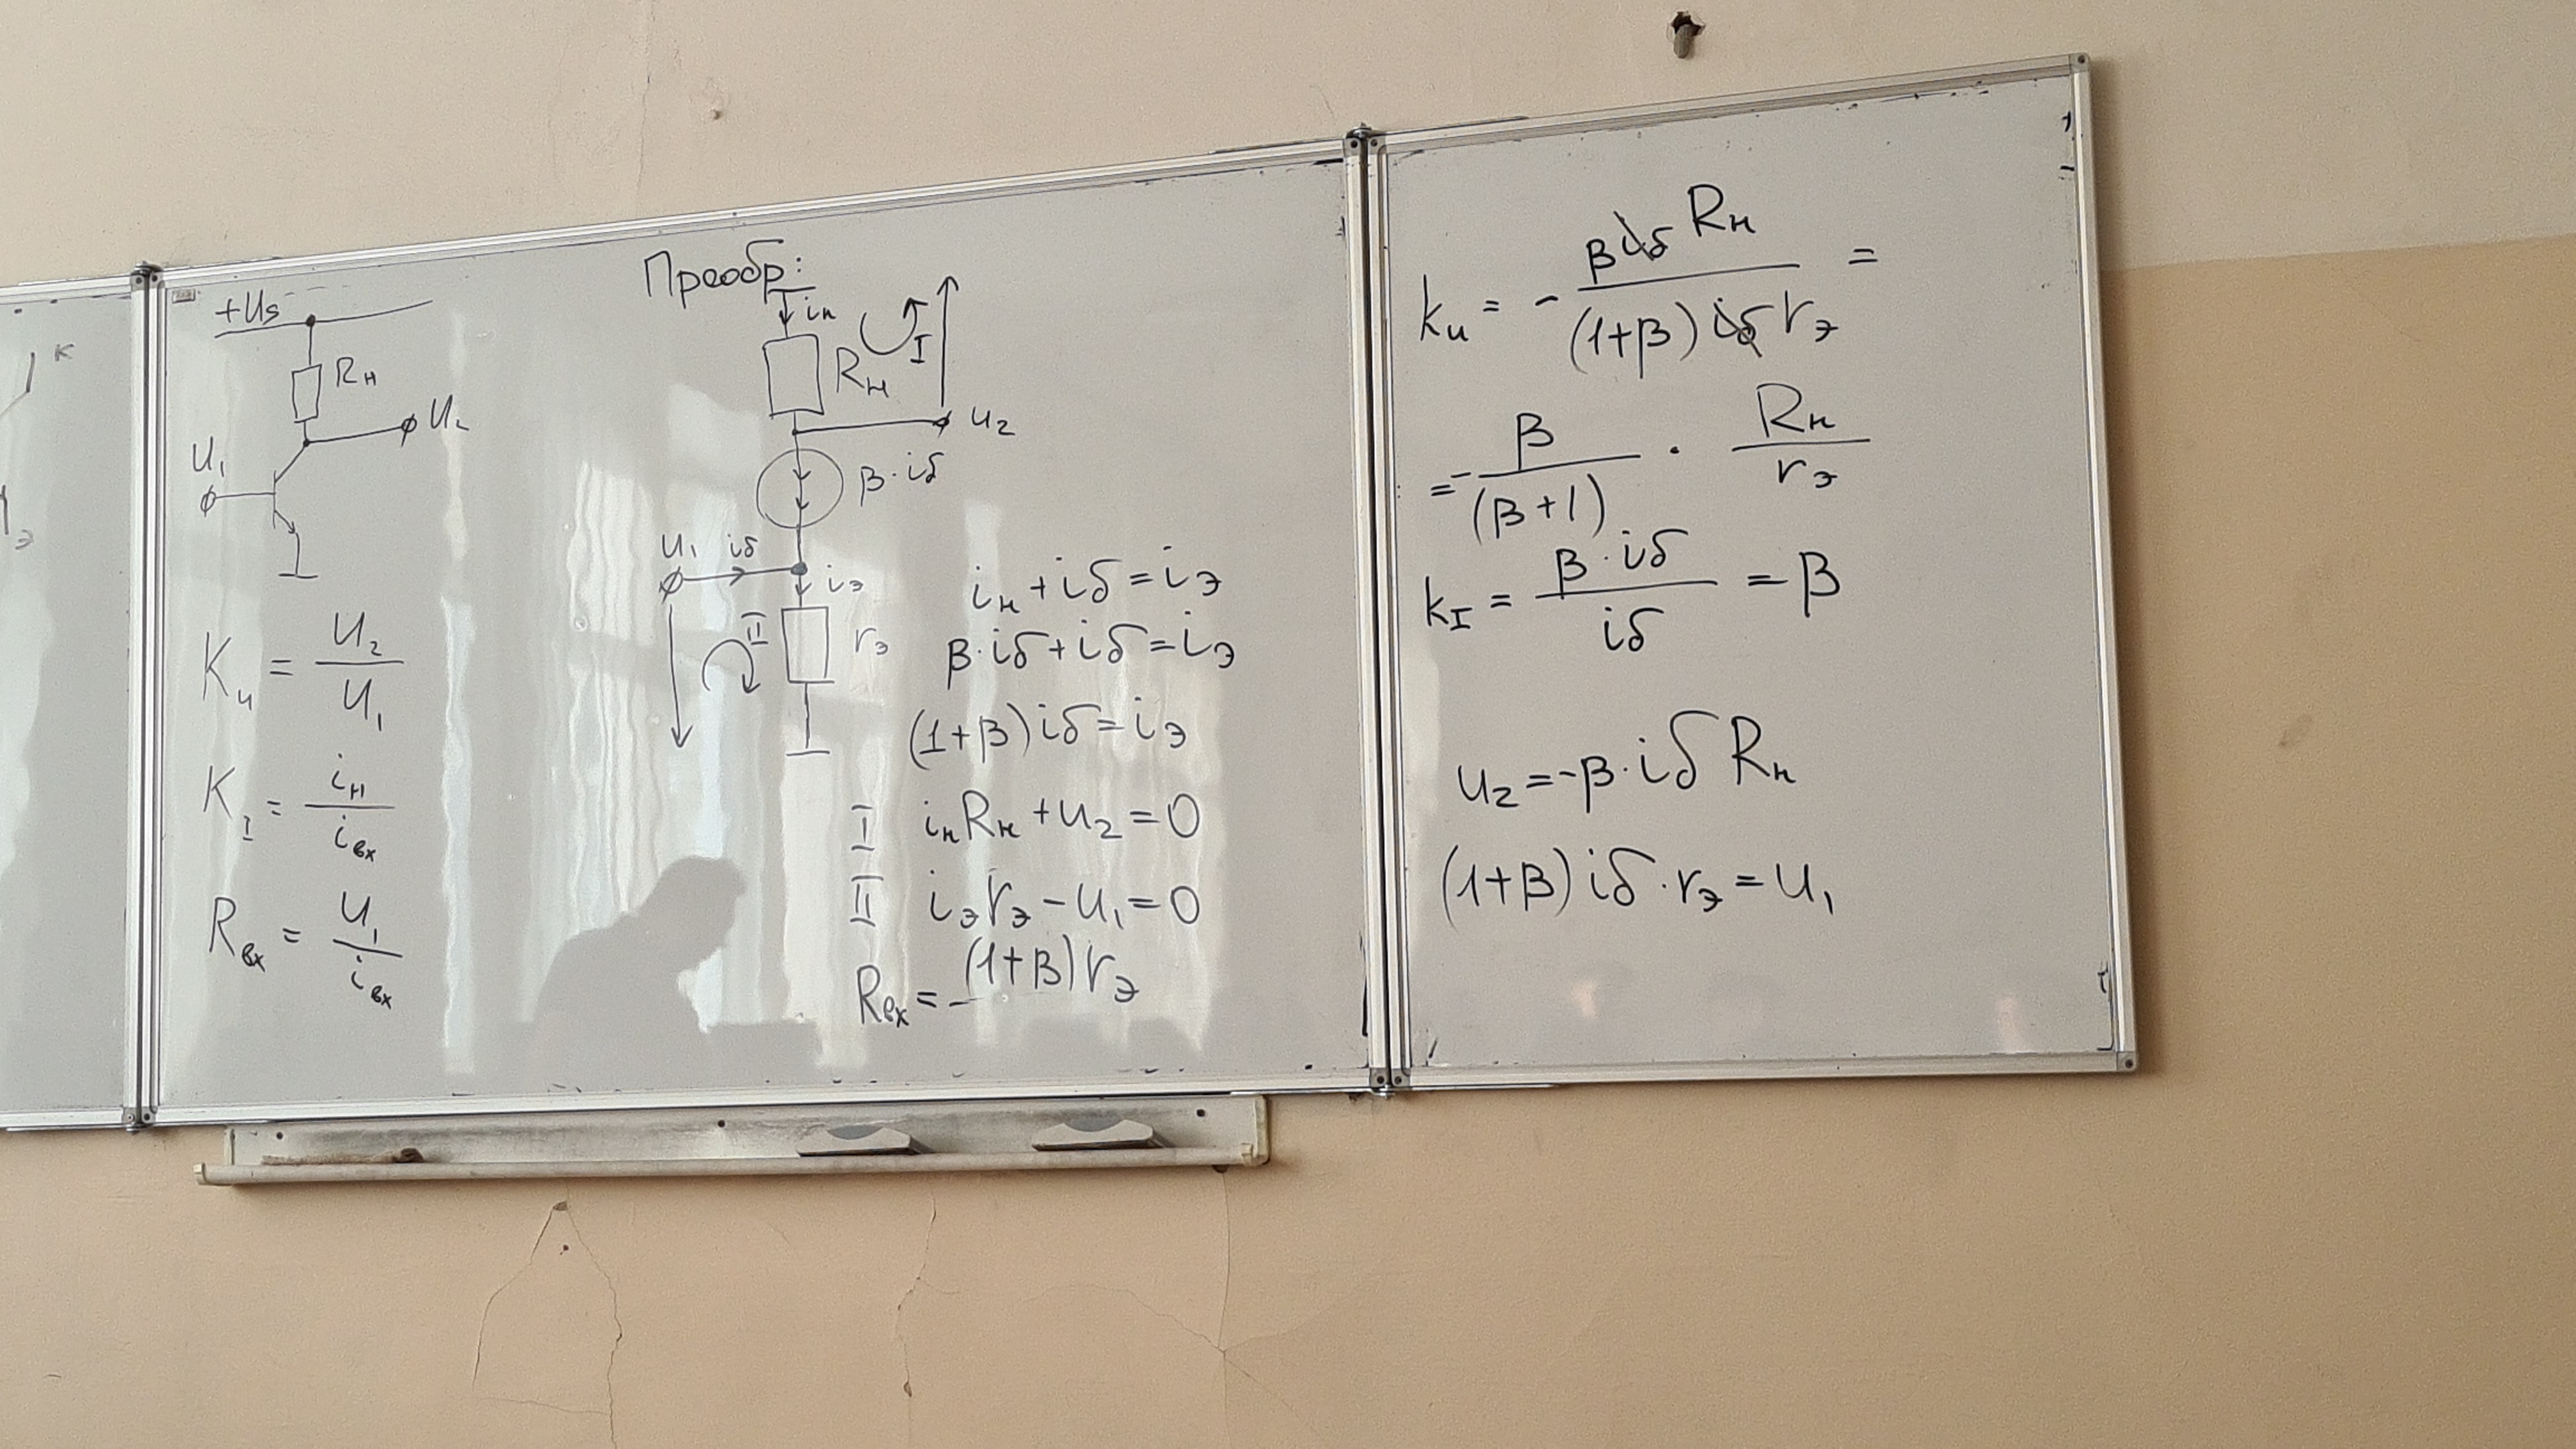 К
э
+Us
Rн
U₂
U₁
Ku = U₂ / U₁
K_I = iн / iвх
Rвх = U₁ / iвх
Преобр:
iн
Rн
I
u₂
β·iб
U₁ iб
iэ
II
rэ
iн + iб = iэ
β·iб + iб = iэ
(1+β) iб = iэ
I iнRн + u₂ = 0
II iэrэ - u₁ = 0
Rвх = (1+β) rэ
ku = - β iб Rн / (1+β) iб rэ =
= - β / (β+1) · Rн / rэ
k_I = β·iб / iб = β
u₂ = -β·iб Rн
(1+β) iб·rэ = u₁